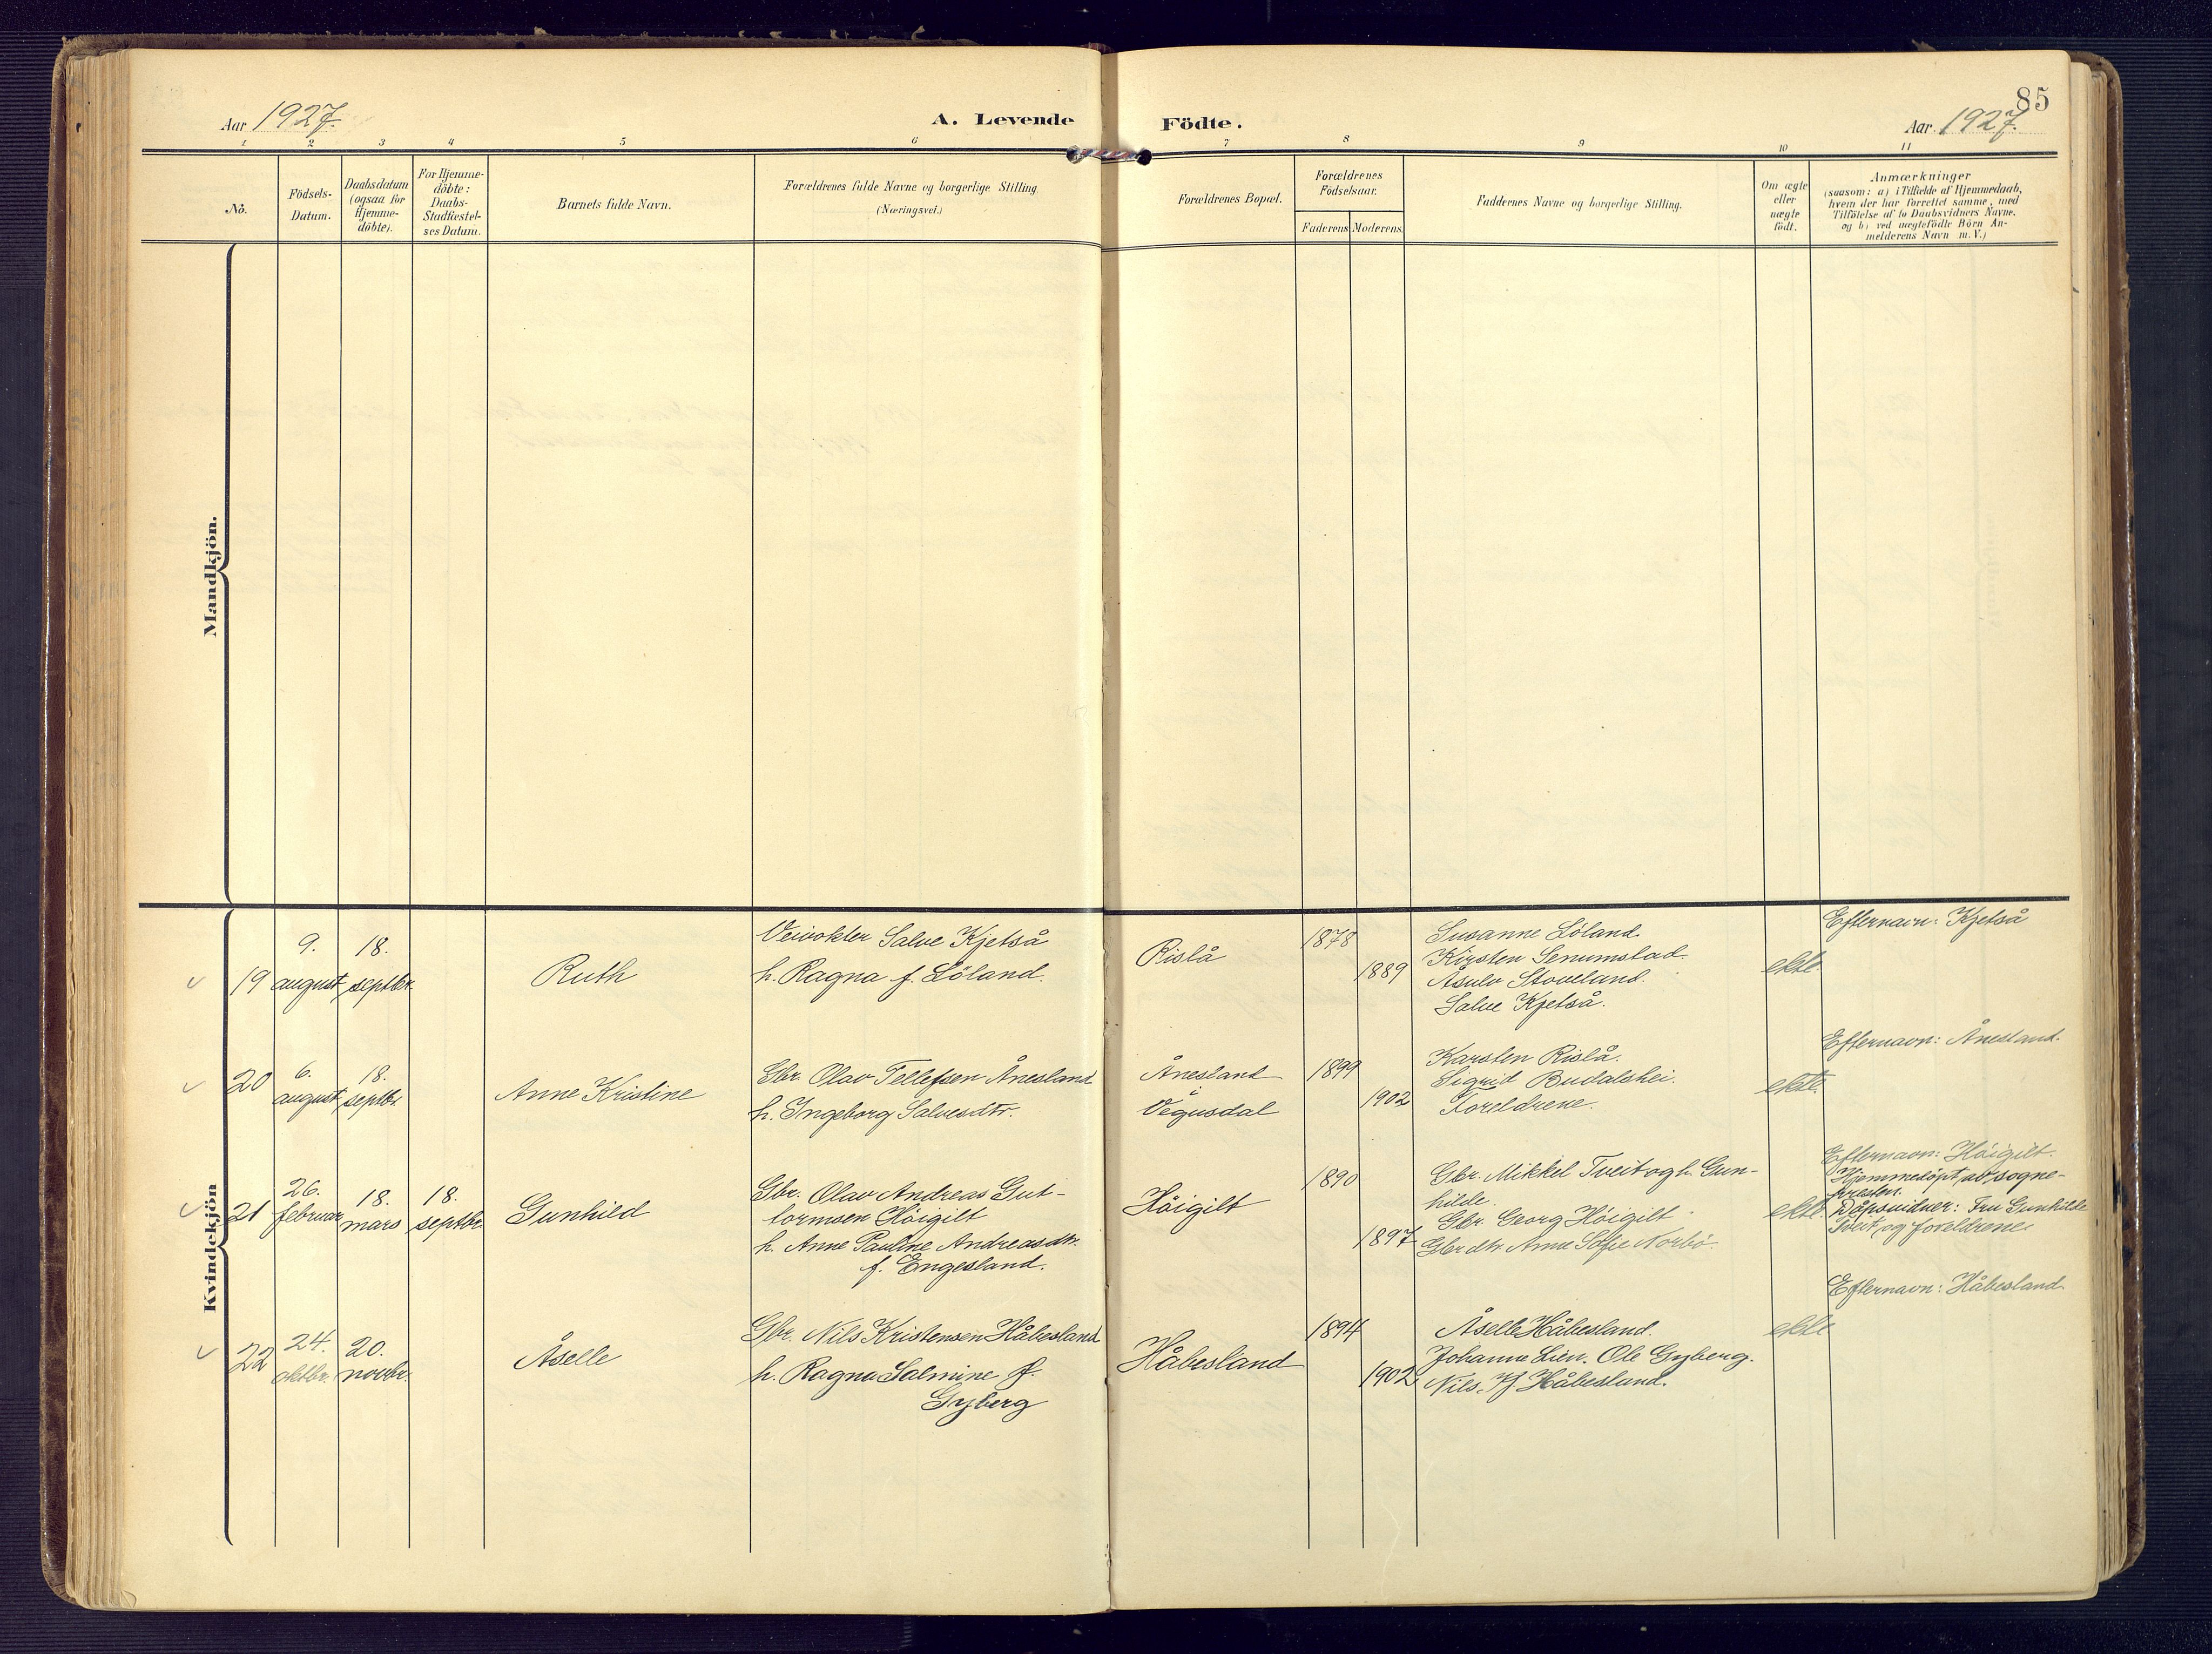 85
Aar 1927.
A. Levende
Födte.
Aar. 1927.
1 2 3 4 5 6 7 8 9 10 11
No.
Födsels-
Datum.
Daabsdatum
(ogsaa for
Hjemme-
döbte).
For Hjemme-
döbte:
Daabs-
Stadfæstel-
ses Datum.
Barnets fulde Navn.
Forældrenes fulde Navne og borgerlige Stilling.
(Næringsvei.)
Forældrenes Bopæl.
Forældrenes
Födselsaar.
Faderens
Moderens
Faddernes Navne og borgerlige Stilling.
Om ægte
eller
uægte
födt.
Anmærkninger
(saasom: a) i Tilfælde af Hjemmedaab,
hvem der har forrettet samme, med
Tilföielse af to Daabsvidners Navne.
og b) ved uægtefödte Börn An-
melderens Navn m. V.)
Mandkjön.
Kvindekjön
19
9.
august
18.
septbr.
Ruth
Veivokter Salve Kjetså
h. Ragna f. Löland.
Rislå
1878
1889
Susanne Löland
Kirsten Senumstad.
Åsulv Stoveland.
Salve Kjetså.
ekte.
Efternavn: Kjetså
20
6.
august
18.
septbr.
Anne Kristine
Gbr. Olav Tellefsen Ånesland
h. Ingeborg Salvesdtr.
Ånesland
i
Vegusdal
1899
1902
Karsten Rislå.
Sigrid Budalshei.
Foreldrene.
ekte.
Efternavn: Ånesland.
21
26.
februar
18.
mars
18.
septbr.
Gunhild
Gbr. Olav Andreas Gut-
tormsen Höigilt
h. Anne Pauline Andreasdtr.
f. Engesland.
Höigilt
1890
1897
Gbr. Mikkel Tveit og h. Gun-
hilde.
Gbr. Georg Höigilt
Gbrdtr. Anne Sofie Norbö.
ekte
Efternavn: Höigilt.
Hjemmedöpt av sogne-
presten.
Dåpsvidner: Fru Gunhilde
Tveit og foreldrene
22
24.
oktbr.
20.
novbr.
Åselle
Gbr. Nils Kristensen Håbesland
h. Ragna Salmine f.
Gyberg
Håbesland
1894
1902
Åselle Håbesland.
Johanne Lien. Ole Gyberg.
Nils Håbesland.
ekte
Efternavn: Håbesland.